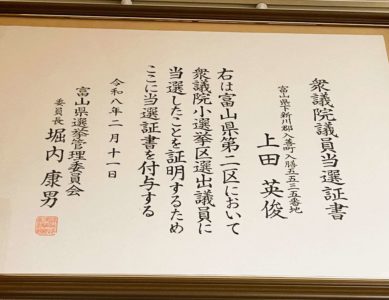 衆議院議員当選証書
富山県下新川郡入善町入膳五五三五番地
上田 英俊
右は富山県第二区において
衆議院小選挙区選出議員に
当選したことを証明するため
ここに当選証書を付与する
令和八年二月十一日
富山県選挙管理委員会
委員長 堀内 康男